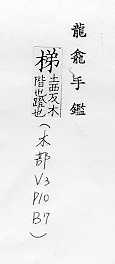 龍龕手鑑
梯
土西反木
階也蹬也
(木部
V3
P10
B7)